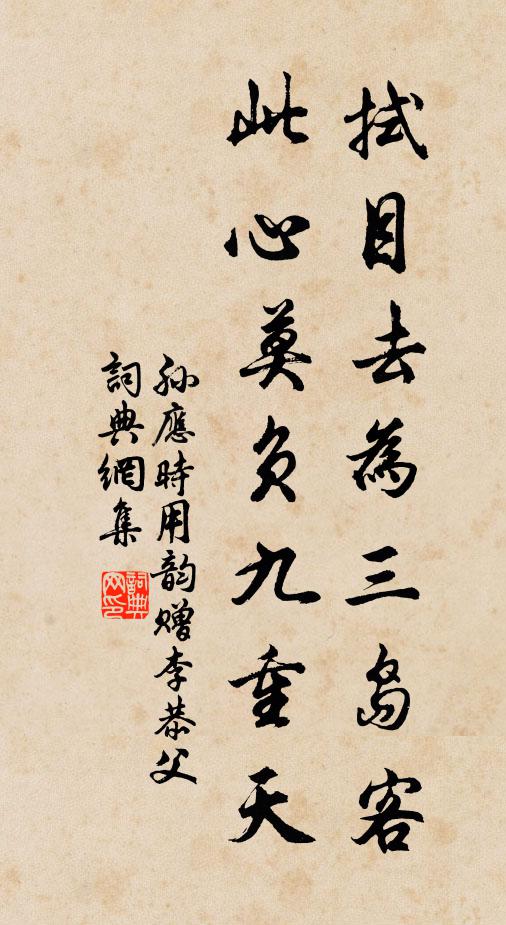 拭目去為三島客
此心莫負九重天
孫應時用韵贈李恭父
詞典網集
詞典網印